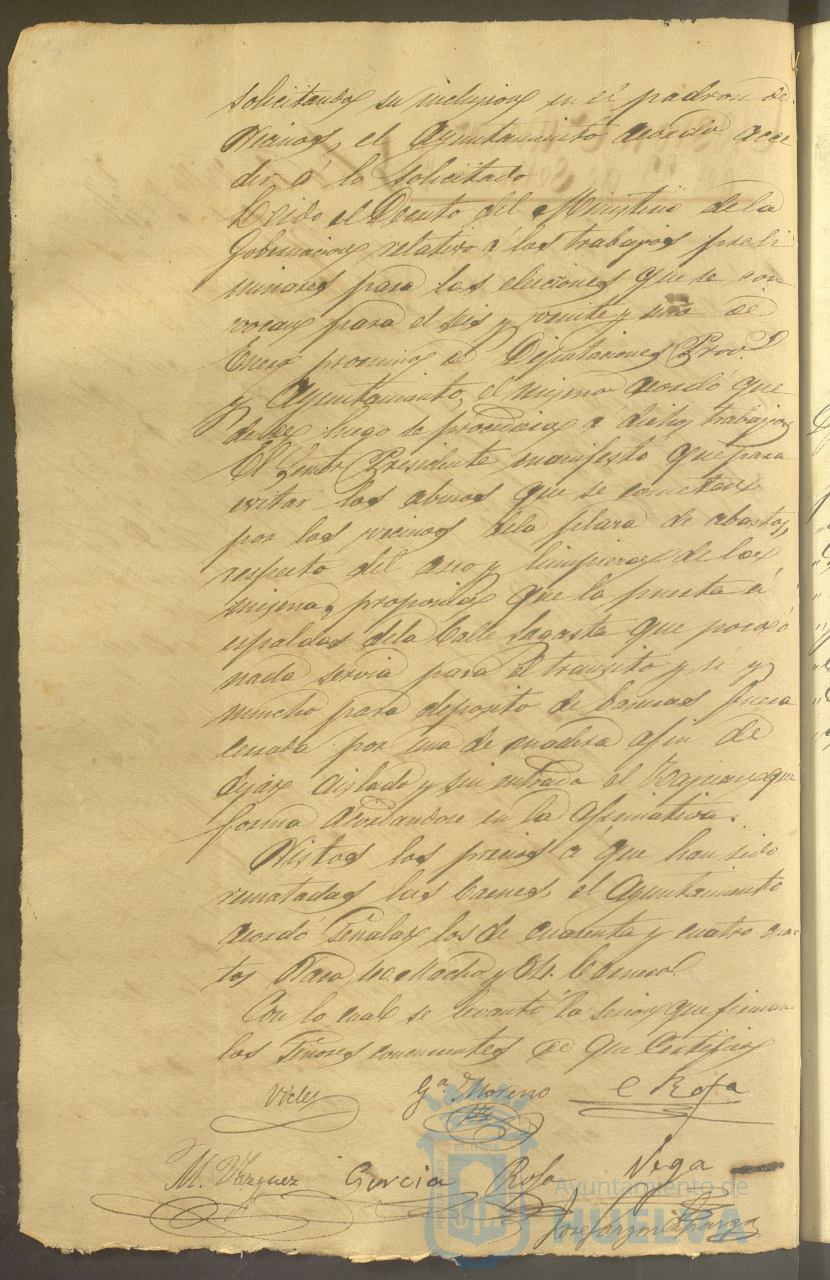 solicitando su inclusion en el padron de
Vecinos, el Ayuntamiento acordo acce
der á lo solicitado
Leido el Decreto del Ministerio de la
Gobernacion relativo á los trabajos preli
minares para las elecciones que se con
vocan para el seis y veinte y seis de
Enero proximo de Diputaciones Prov.s
y Ayuntamiento, el mismo acordó que
desde luego se procediera á dichos trabajos
El Señor Presidente manifestó que para
evitar los abusos que se cometen
por los vecinos dela plaza de abastos,
respecto del aseo y limpieza de la
misma, proponia que la puerta á
espaldas dela Calle Sagasta que poco ó
nada servia para el transito y si y
mucho para deposito de basuras fuera
cerrada por una de madera afin de
dejar aislado y sin entrada el Zaguan que
forma acordandose en la afirmativa.
Vistos los precios á que han sido
rematadas las Carnes, el Ayuntamiento
acordó señalar los de cuarenta y cuatro cuar
tos Vaca, 40. Macho y 34. Carnero.
Con lo cual se levantó la sesion que firman
los Señores concurrentes de que Certifico
Vides G.a Moreno C Rofa
M. Vazquez Garcia Rofa Vega
Jose
Ayuntamiento de
HUELVA